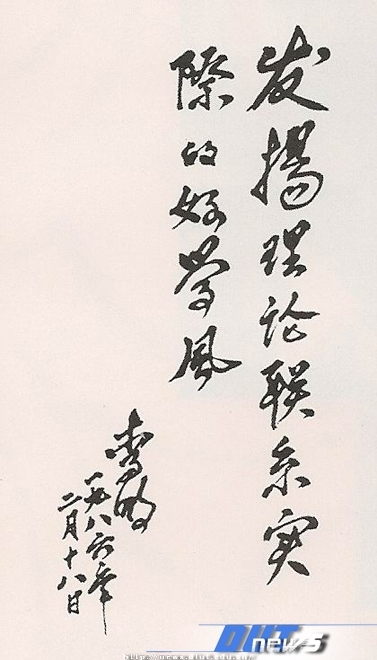 发揚理论联系实
際的好學風
一九八六年
二月十八日
DUT news